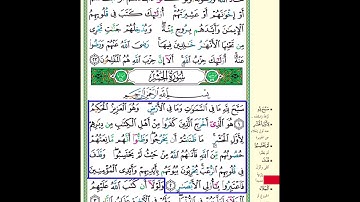 أَوْ إِخْوَٰنَهُمْ أَوْ عَشِيرَتَهُمْ ۚ أُو۟لَٰٓئِكَ كَتَبَ فِى قُلُوبِهِمُ
ٱلْإِيمَٰنَ وَأَيَّدَهُم بِرُوحٍ مِّنْهُ ۖ وَيُدْخِلُهُمْ جَنَّٰتٍ تَجْرِى
مِن تَحْتِهَا ٱلْأَنْهَٰرُ خَٰلِدِينَ فِيهَا ۚ رَضِىَ ٱللَّهُ عَنْهُمْ وَرَضُوا۟
عَنْهُ ۚ أُو۟لَٰٓئِكَ حِزْبُ ٱللَّهِ ۚ أَلَآ إِنَّ حِزْبَ ٱللَّهِ هُمُ ٱلْمُفْلِحُونَ ٢٢
سُورَةُ الحَشْرِ
بِسْمِ ٱللَّهِ ٱلرَّحْمَٰنِ ٱلرَّحِيمِ
سَبَّحَ لِلَّهِ مَا فِى ٱلسَّمَٰوَٰتِ وَمَا فِى ٱلْأَرْضِ ۖ وَهُوَ ٱلْعَزِيزُ ٱلْحَكِيمُ
١ هُوَ ٱلَّذِىٓ أَخْرَجَ ٱلَّذِينَ كَفَرُوا۟ مِنْ أَهْلِ ٱلْكِتَٰبِ مِن دِيَٰرِهِمْ
لِأَوَّلِ ٱلْحَشْرِ ۚ مَا ظَنَنتُمْ أَن يَخْرُجُوا۟ ۖ وَظَنُّوٓا۟ أَنَّهُم مَّانِعَتُهُمْ
حُصُونُهُم مِّنَ ٱللَّهِ فَأَتَىٰهُمُ ٱللَّهُ مِنْ حَيْثُ لَمْ يَحْتَسِبُوا۟ ۖ وَقَذَفَ
فِى قُلُوبِهِمُ ٱلرُّعْبَ ۚ يُخْرِبُونَ بُيُوتَهُم بِأَيْدِيهِمْ وَأَيْدِى ٱلْمُؤْمِنِينَ
فَٱعْتَبِرُوا۟ يَٰٓأُو۟لِى ٱلْأَبْصَٰرِ ٢ وَلَوْلَآ أَن كَتَبَ ٱللَّهُ عَلَيْهِمُ